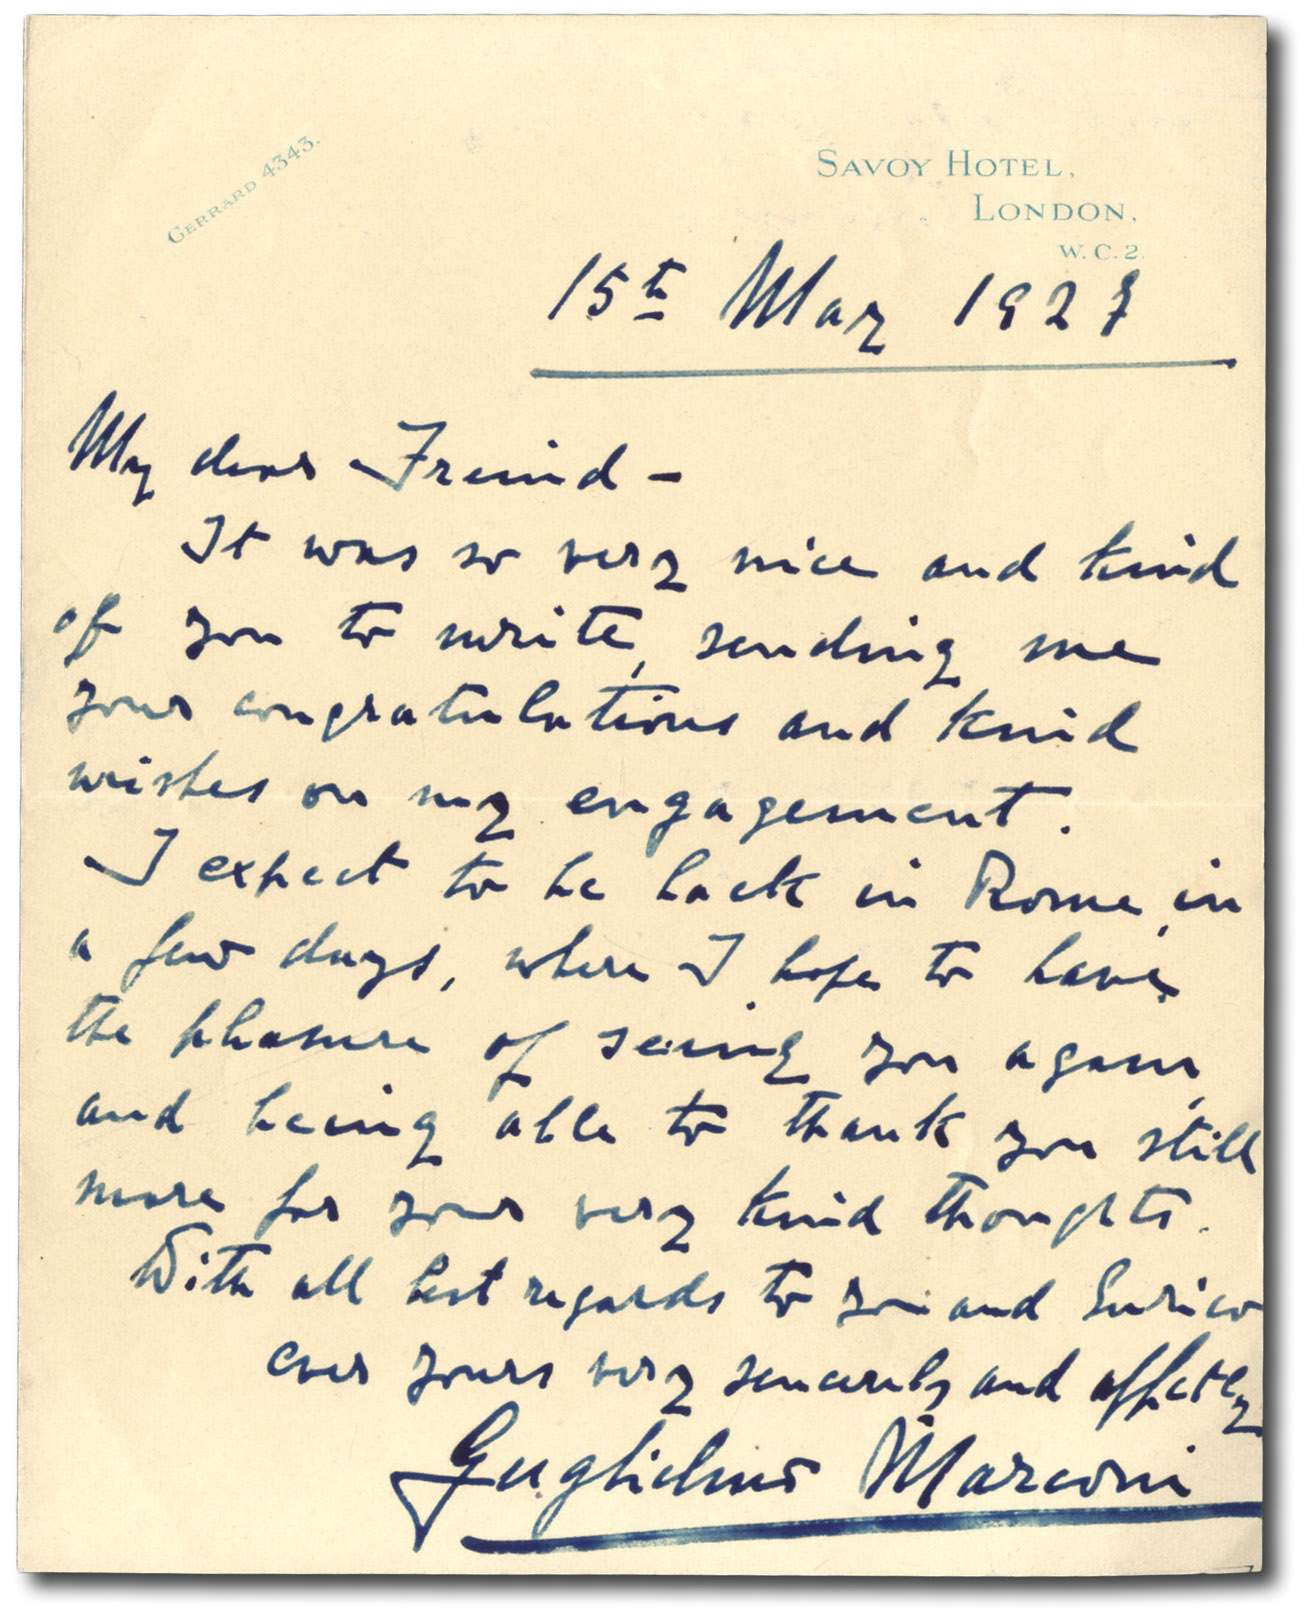 GERRARD 4343.
SAVOY HOTEL,
LONDON,
W.C.2.
15th May 1927
My dear Freind –
It was so very nice and kind
of you to write, sending me
your congratulations and kind
wishes on my engagement.
I expect to be back in Rome, in
a few days, where I hope to have
the pleasure of seeing you again,
and being able to thank you still
more for your very kind thoughts.
With all best regards to you and Enrico
ever yours very sincerely and affctely
Guglielmo Marconi